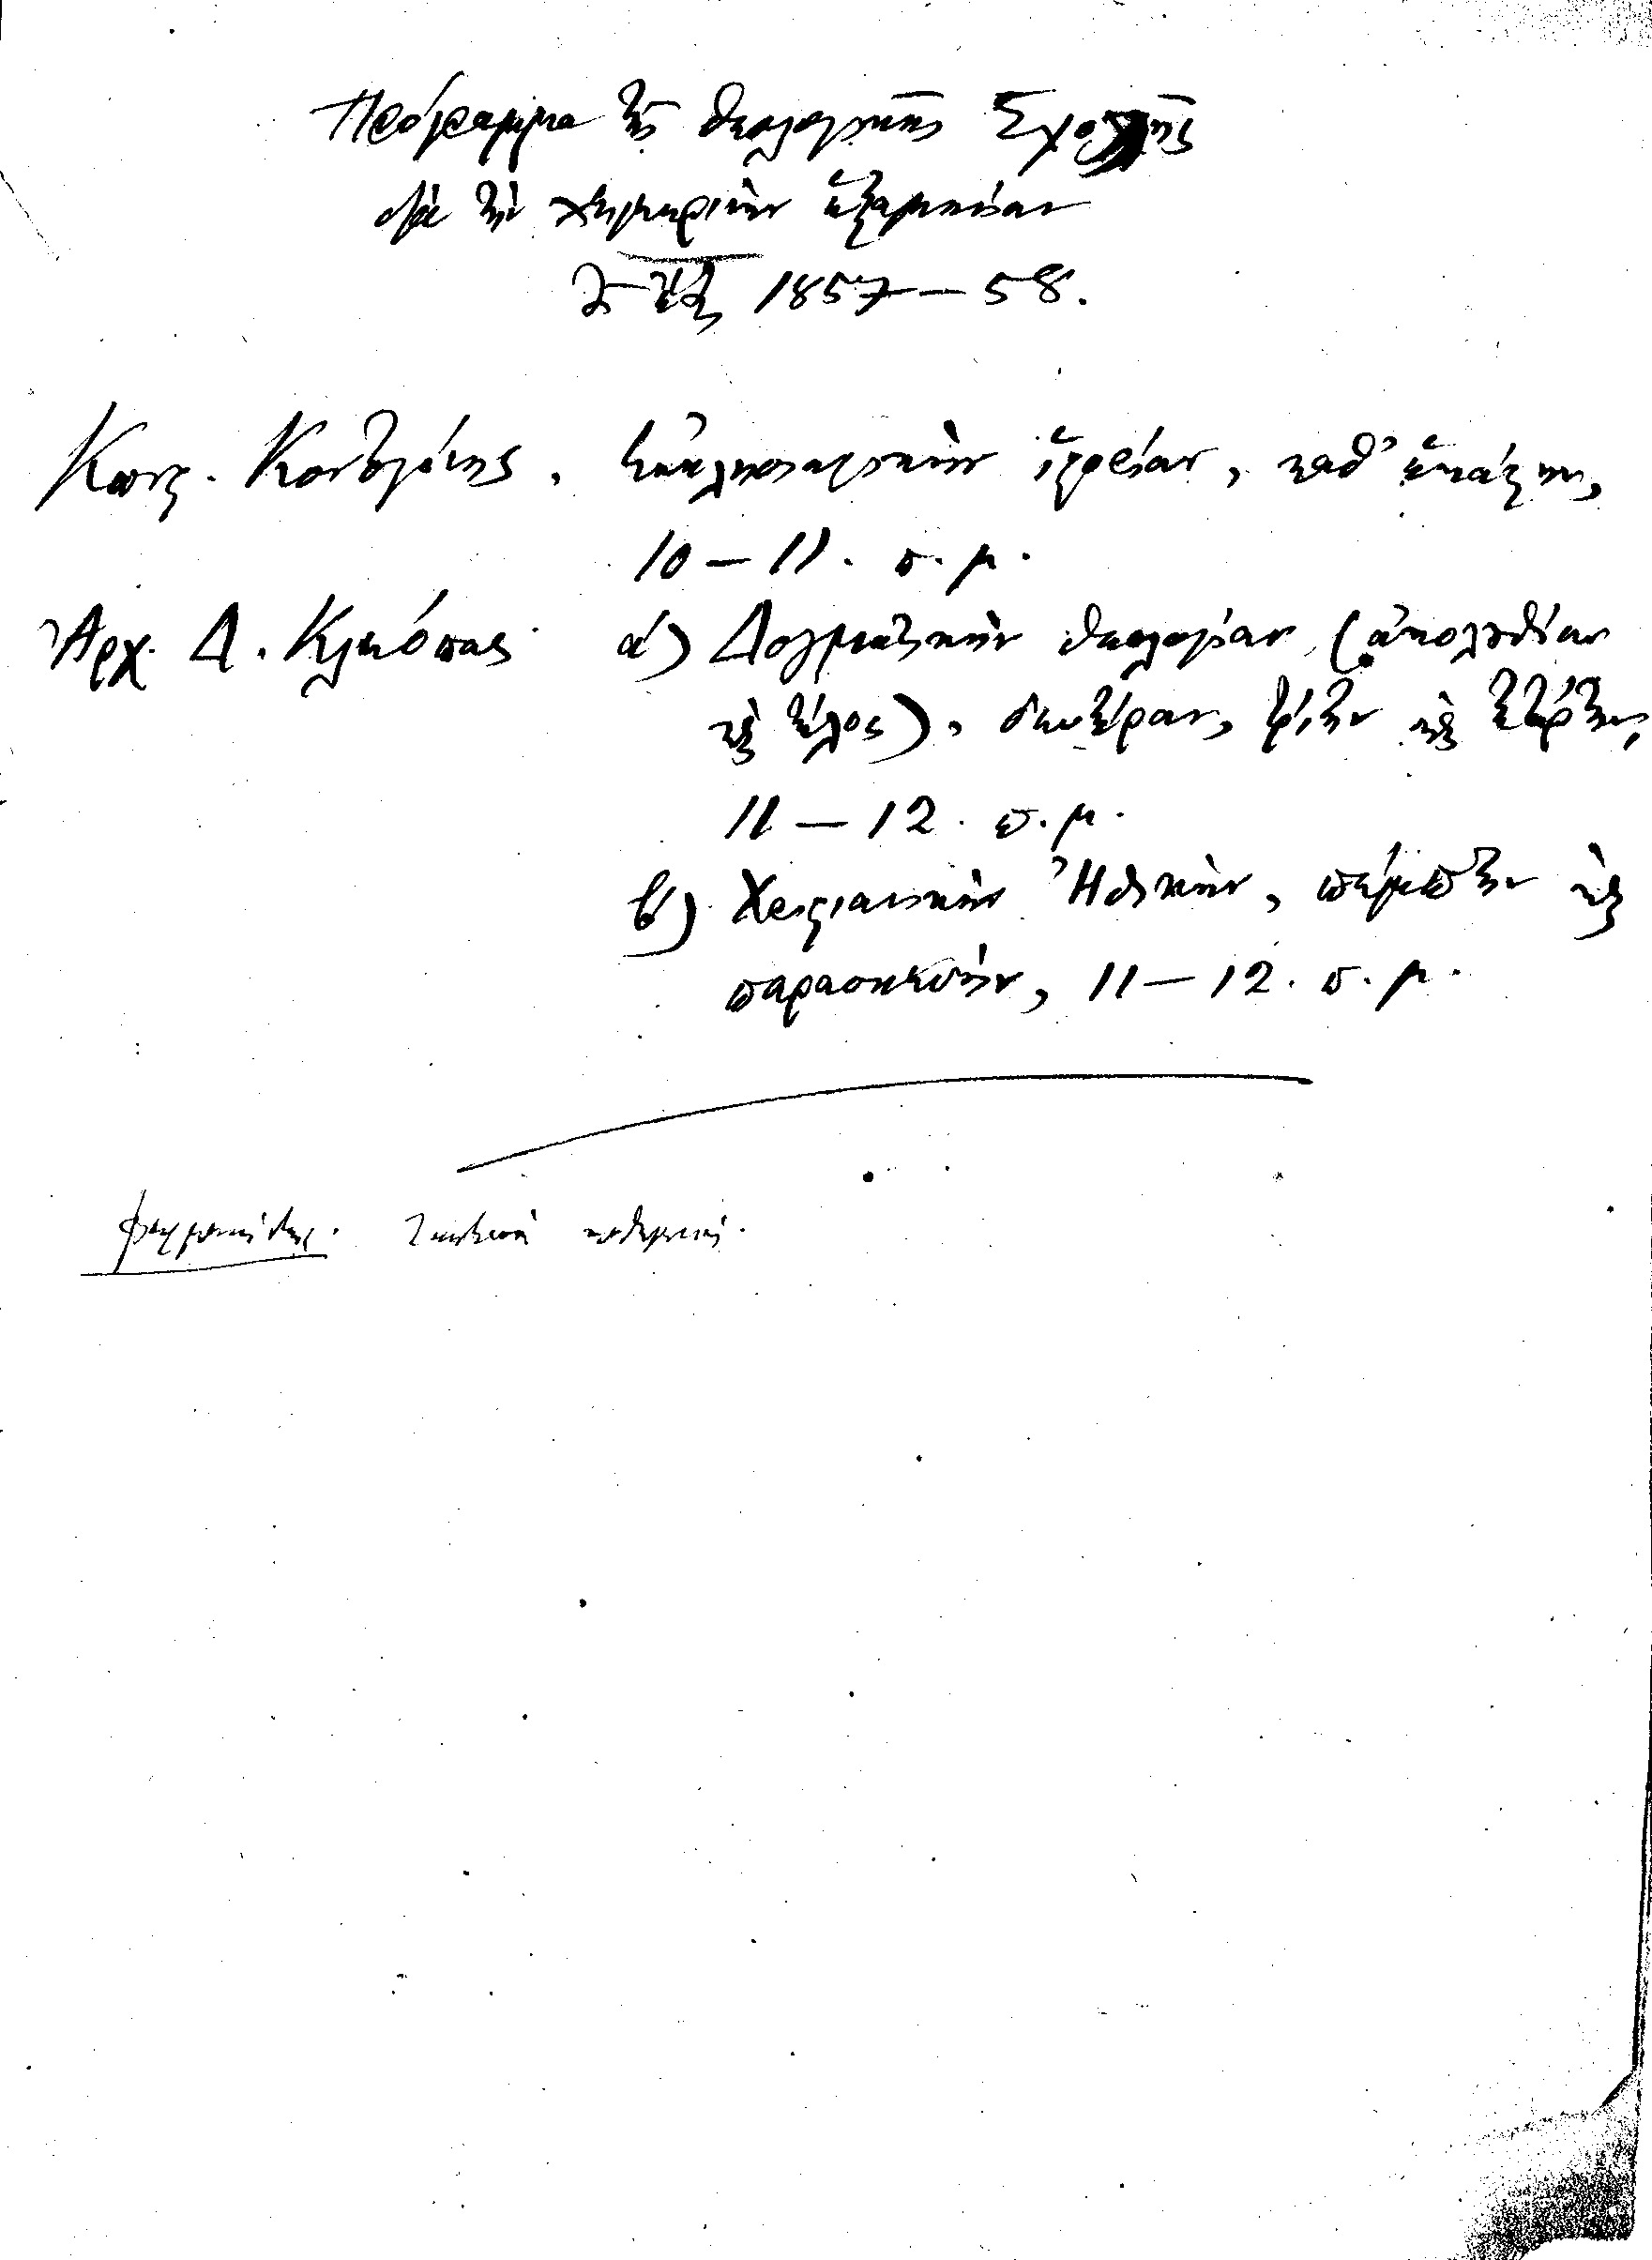 Πρόγραμμα τῆς θεολογικῆς Σχολῆς
διὰ τὴν χειμερινὴν ἑξαμηνίαν
1857 – 58.
Κωνς. Κοντογόνης. Ἐκκλησιαστικὴν ἱστορίαν, καθ' ἑκάστην,
10 – 11. π. μ.
Ἀρχ. Δ. Κλεόπας α) Δογματικὴν θεολογίαν (ἀκολουθίαν
καὶ τέλος), δευτέραν, τρίτην καὶ τετάρτην,
11 – 12. π. μ.
β) Χριστιανικὴν Ἠθικὴν, πέμπτην καὶ
παρασκευὴν, 11 – 12. π. μ.
Φαρμακίδης.